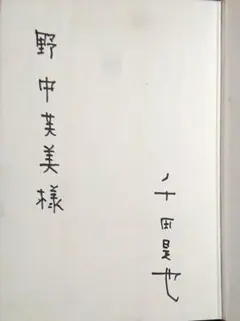 野中芙美様
千田是也